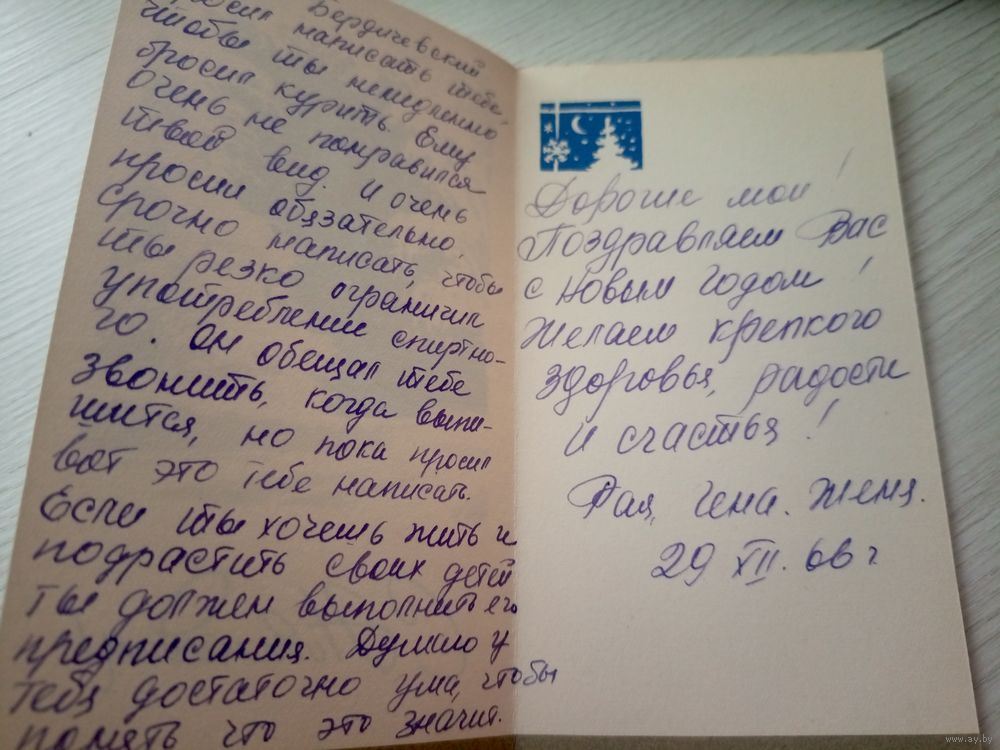 Бердичевский
просил написать тебе,
чтобы ты немедленно
бросил курить. Ему
очень не понравился
твой вид. И очень
просил обязательно,
срочно написать, чтобы
ты резко ограничил
употребление спиртно-
го. Он обещал тебе
звонить, когда выпи-
шится, но пока просил
вот это тебе написать.
Если ты хочешь жить и
подрастить своих детей
ты должен выполнить его
предписания. Думаю у
тебя достаточно ума, чтобы
понять что это значит.
Дорогие мои!
Поздравляем Вас
с новым годом!
Желаем крепкого
здоровья, радости
и счастья!
Рая, Гена. Женя.
29 XII. 66 г
www.ay.by